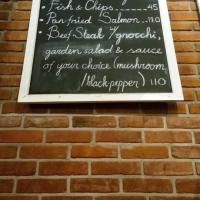 Fish & Chips........45
• Pan-fried Salmon..110
• Beef Steak w/gnocchi,
garden salad & sauce
of your choice (mushroom
/black pepper) 110